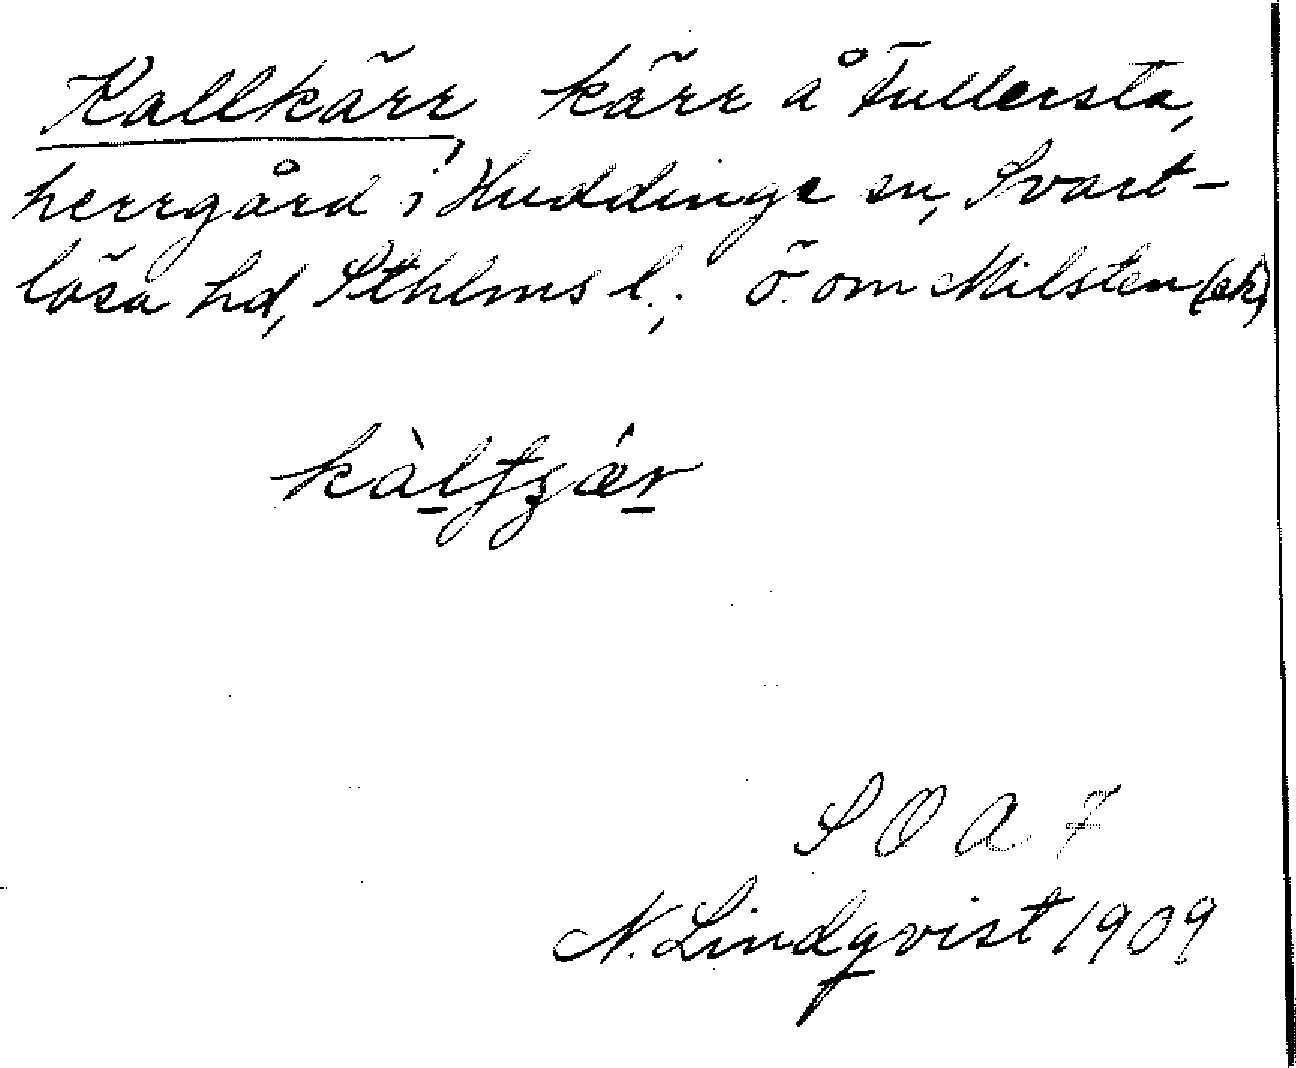 Kallkärr, kärr å Fullersta,
herrgård i Huddinge sn, Svart-
lösa hd, Sthlms l.; ö. om Milsten (ek)
SOA 7
N. Lindqvist 1909